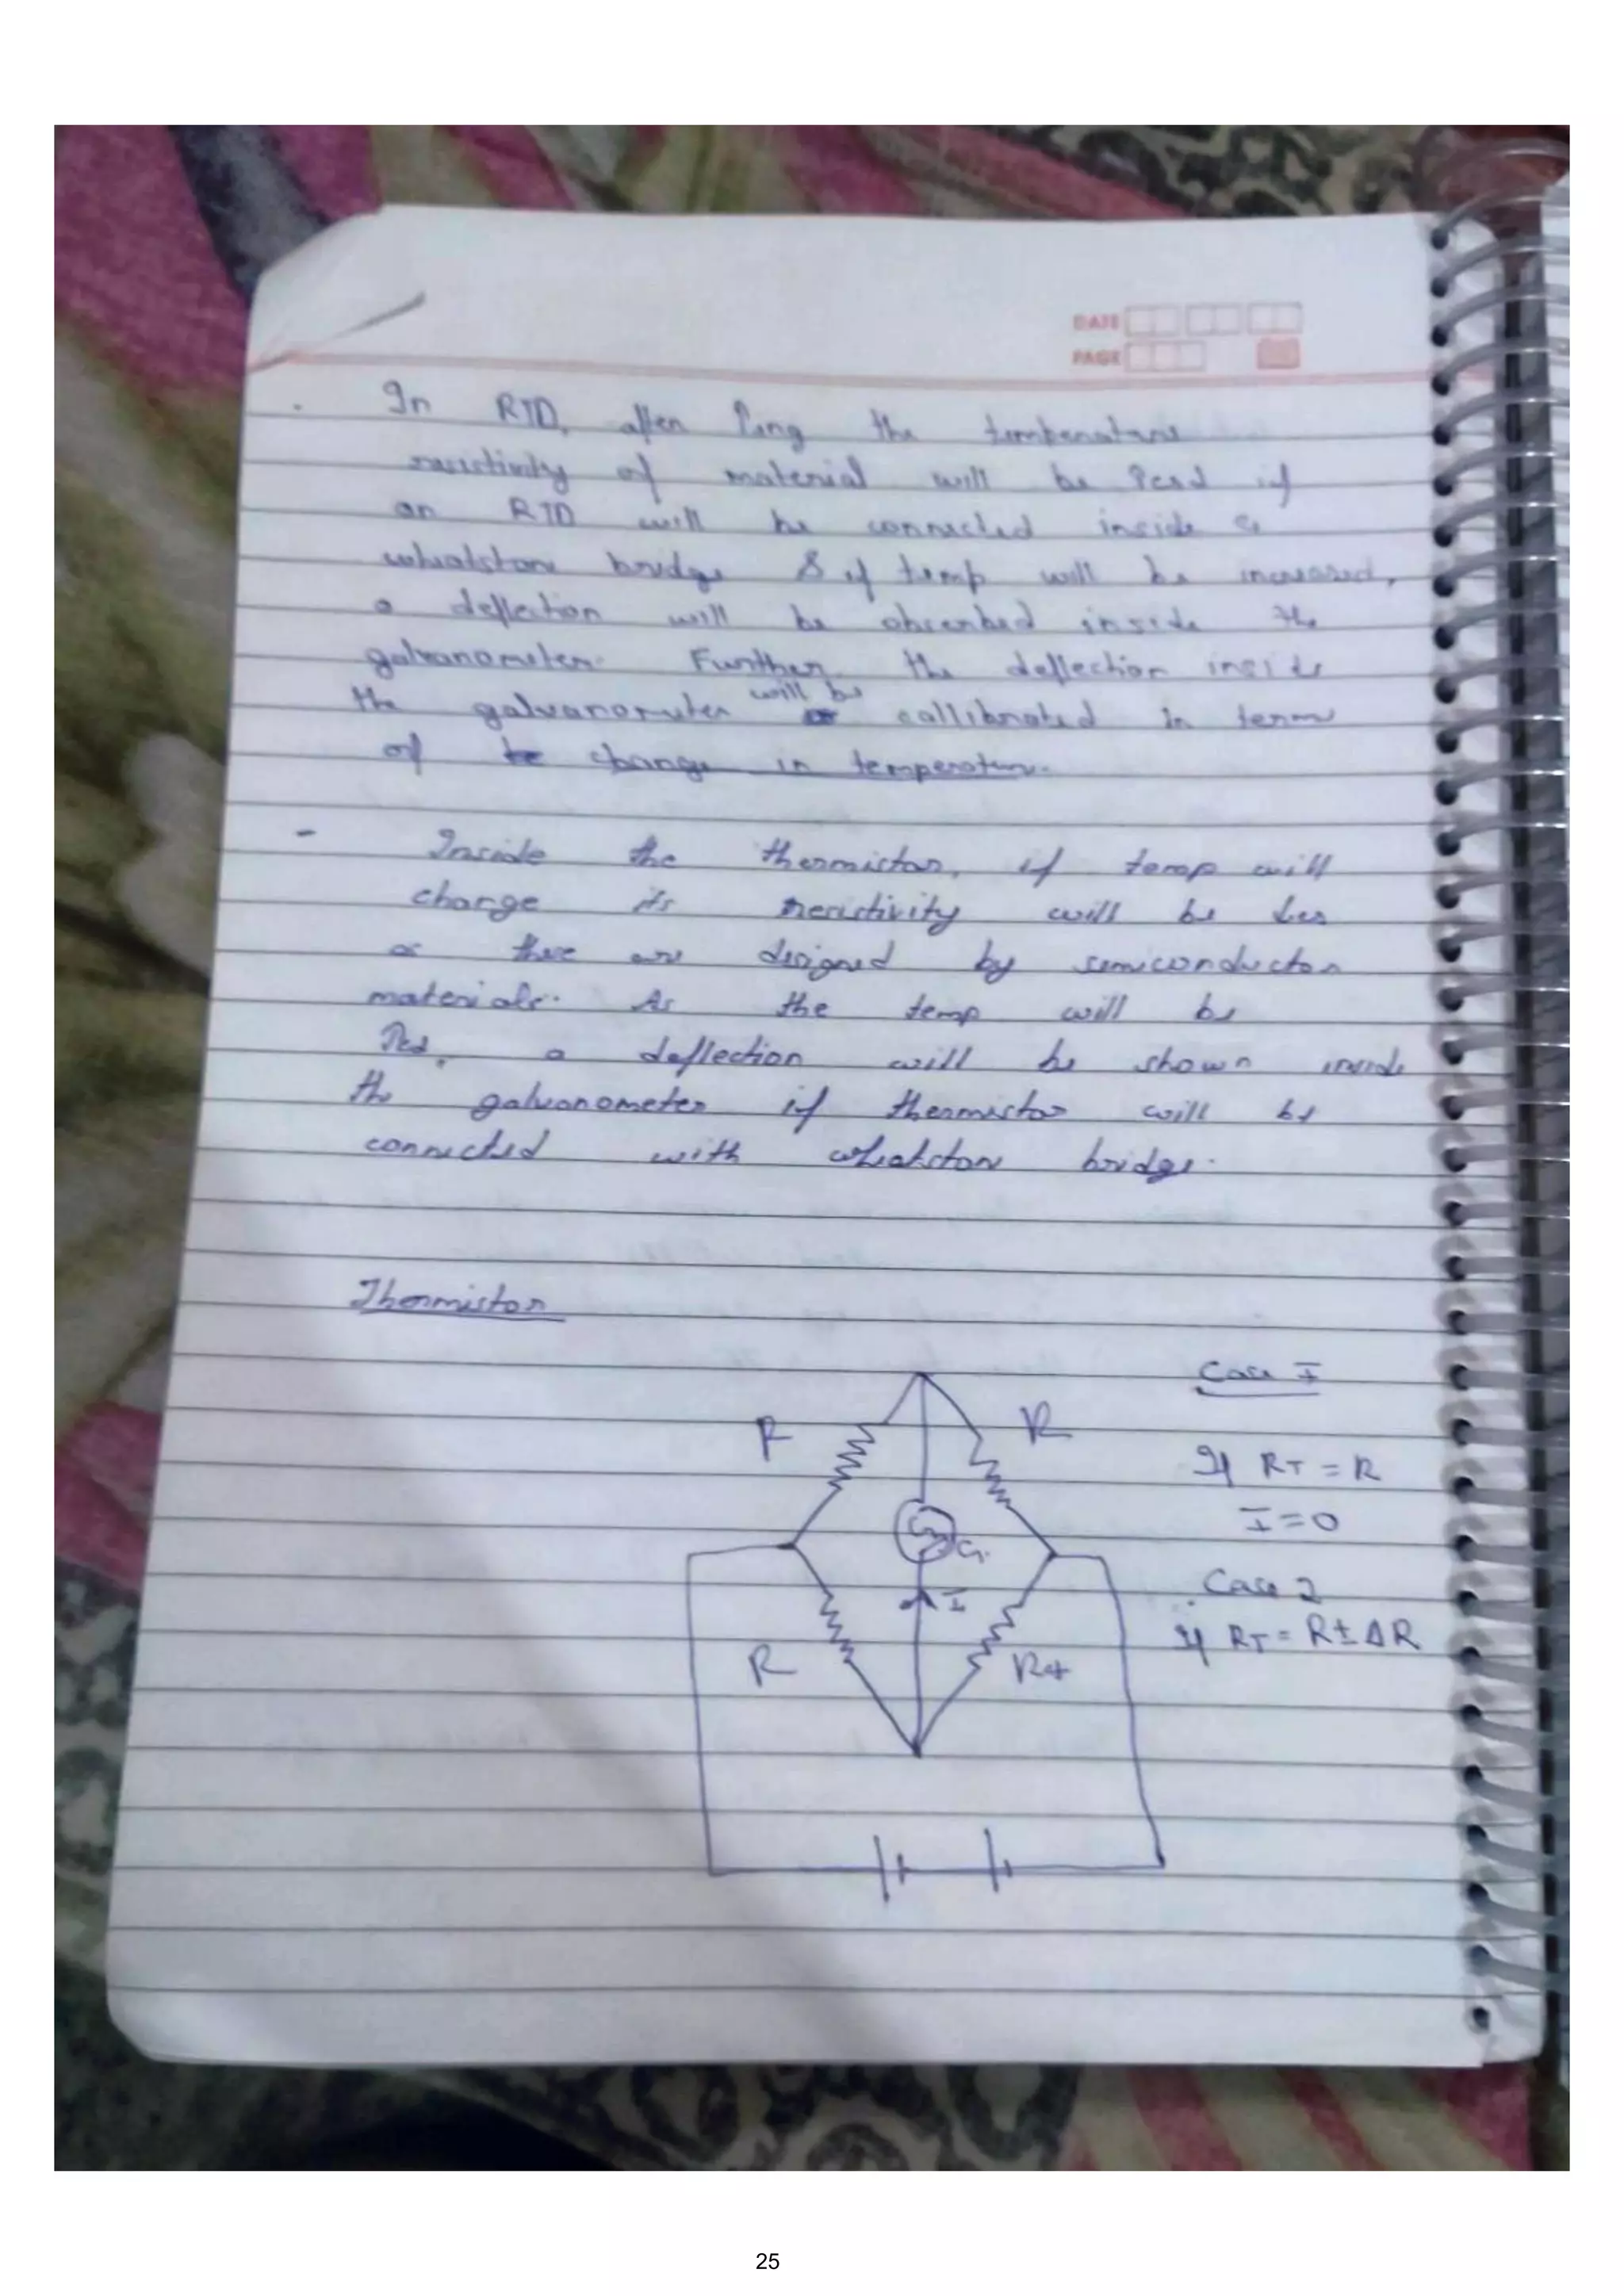 DATE
PAGE
In RTD, after ↑ing the temperature
resistivity of material will be ↑esd if
an RTD will be connected inside a
whealston bridge & if temp will be increased,
a deflection will be obserbed inside the
galvanometer. Further the deflection inside
the galvanometer will be callibrated in term
of change in temperature.
- Inside the thermistor, if temp will
change its resistivity will be les
as these are designed by semiconductor
materials. As the temp will be
↑ed, a deflection will be shown inside
the galvanometer if thermistor will be
connected with whealston bridge.
Thermistor
Case I
R R
If RT = R
I = 0
G
I
Case 2
If RT = R ± ΔR
R Rt
25